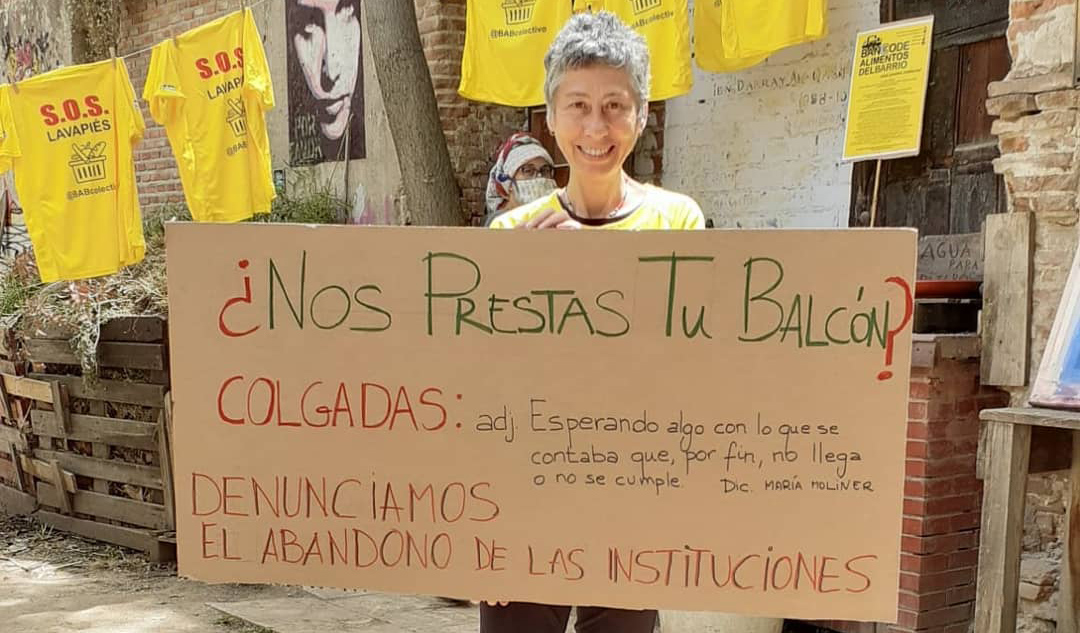 S.O.S.
LAVAPIÉS
@BABcolectivo
S.O.S.
LAVAPI
@BAB
@BABcolectivo
BABcolective
BANCO DE
ALIMENTOS
DEL BARRIO
AGUA
PARA
¿NOS PRESTAS TU BALCÓN?
COLGADAS: adj. Esperando algo con lo que se
contaba que, por fin, no llega
o no se cumple. Dic. MARÍA MOLINER
DENUNCIAMOS
EL ABANDONO DE LAS INSTITUCIONES